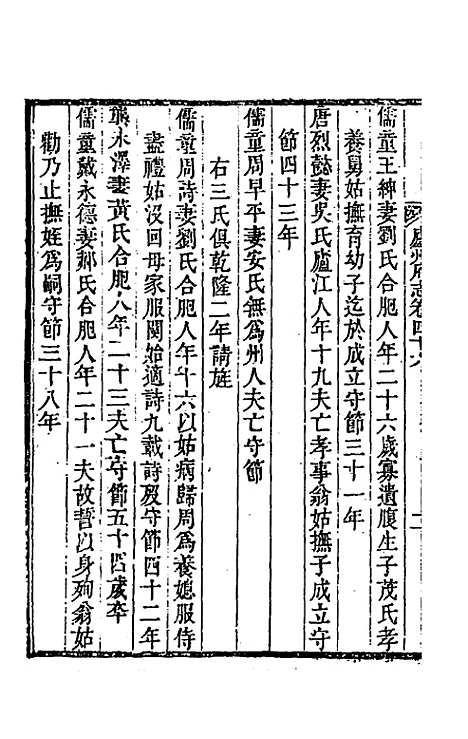 廬州府志卷四十六
儒童王紳妻劉氏合肥人年二十六歲寡遺腹生子茂氏孝
養舅姑撫育幼子迄於成立守節三十一年
唐烈懿妻吳氏廬江人年十九夫亡孝事翁姑撫子成立守
節四十三年
儒童周早平妻安氏無爲州人夫亡守節
右三氏俱乾隆二年請旌
儒童周詩妻劉氏合肥人年十六以姑病歸周爲養媳服侍
盡禮姑沒回母家服闋始適詩九載詩歿守節四十二年
龔永澤妻黃氏合肥人年二十三夫亡守節五十四歲卒
儒童戴永德妻郝氏合肥人年二十一夫故誓以身殉翁姑
勸乃止撫姪爲嗣守節三十八年